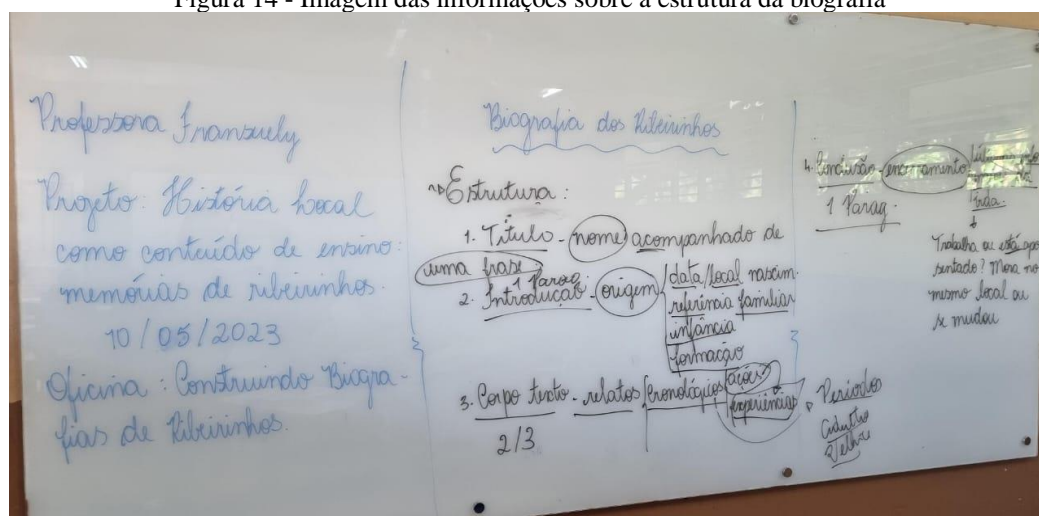 Figura 14 - Imagem das informações sobre a estrutura da biografia
Professora Franzuely
Projeto: História Local
como conteúdo de ensino:
memórias de ribeirinhos.
10/05/2023
Oficina: Construindo Biogra-
fias de Ribeirinhos.
Biografia dos Ribeirinhos
Estrutura:
1. Título - nome acompanhado de
uma frase
1 Parag.
2. Introdução - origem data/local nascim.
referência familiar
infância
formação
3. Corpo texto - relatos cronológicos ações
experiências
2/3
Períodos
Velhice
4. Conclusão - encerramento
vida.
1 Parag.
Trabalha ou está apo
sentado? Mora no
mesmo local ou
se mudou